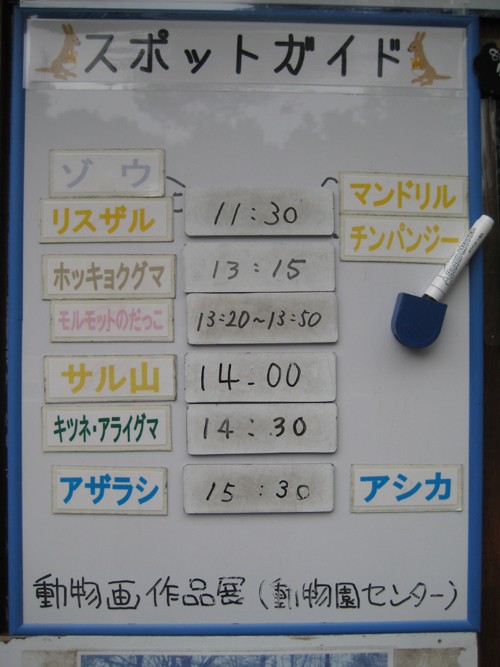 スポットガイド
ゾウ
リスザル 11:30 マンドリル
チンパンジー
ホッキョクグマ 13:15
モルモットのだっこ 13:20~13:50
サル山 14-00
キツネ・アライグマ 14:30
アザラシ 15:30 アシカ
動物画作品展(動物園センター)